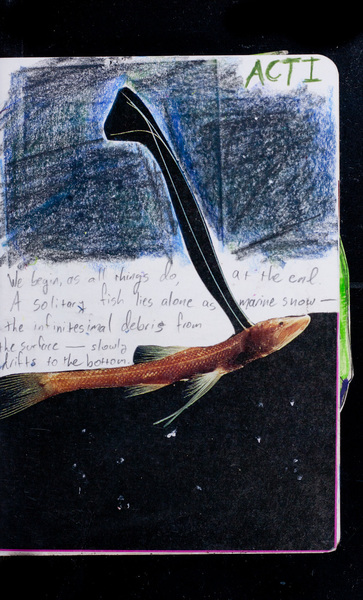 ACT I
We begin, as all things do, at the end.
A solitary fish lies alone as marine snow —
the infinitesimal debris from
the surface — slowly
drifts to the bottom.